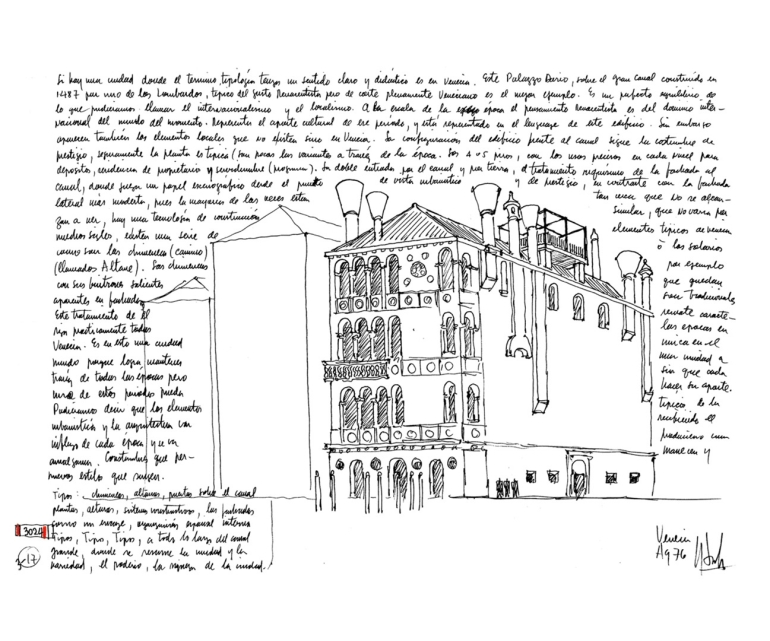 Si hay una ciudad donde el termino, tipología tenga un sentido claro y didáctico es en Venecia. Este Palazzo Dario, sobre el gran canal construido en
1487 por uno de los Lombardos, típico del gusto Renacentista pero de corte plenamente Veneciano es el mejor ejemplo. Es un perfecto equilibrio de
lo que pudieramos llamar el internacionalismo y el localismo. A la escala de la época el pensamiento renacentista es del dominio inter-
nacional del mundo del momento. Representa el aporte cultural de ese periodo, y está representado en el lenguaje de este edificio. Sin embargo
aparecen también los elementos locales que no existen sino en Venecia. La configuración del edificio frente al canal sigue la costumbre de
prestigio, seguramente la planta es típica (son pocas las variantes a través de la época. Son 4 o 5 pisos, con los usos precisos en cada nivel para
depositos, residencia de propietario y servidumbre
La doble entrada por el canal y por tierra, el tratamiento
de la fachada al
canal, donde juega un papel escenografico desde el punto de vista urbanistico y de prestigio, en contraste con la fachada
lateral más modesta, pues la mayoria de las veces están
tan cerca que no se alcan-
zan a ver, hay una tecnología de construcción
similar, que no varia por
medios siglos, existen una serie de
elementos típicos de venecia
como son las chimeneas (camino)
o los solarios
(llamados Altane). Las chimeneas
por ejemplo
con sus buitrones salientes
que quedan
aparentes en fachada
son tradicionales
Este tratamiento de el
remate caracte-
rige practicamente toda
las epocas en
Venecia. Es en esto una ciudad
unica en el
mundo porque logra mantener
una unidad a
través de todas las epocas pero
sin que cada
uno de estos periodos pueda
hacer su aporte.
Pudieramos decir que los elementos
típicos de la
urbanistica y la arquitectura van
recibiendo el
influjo de cada epoca y se va
amalgamando. Constumbres que per-
manecen y
nuevos estilos que surgen.
Tipos: chimeneas, altanas, puertas sobre el canal
plantas, alturas, sistemas constructivos, las fachadas
como un encaje, organización espacial interna
Tipos, Tipos, Tipos, a todo lo largo del canal
grande, donde se resume la ciudad y la
variedad, el poderio, la riqueza de la ciudad.
3024
17
Venecia
Ag 76